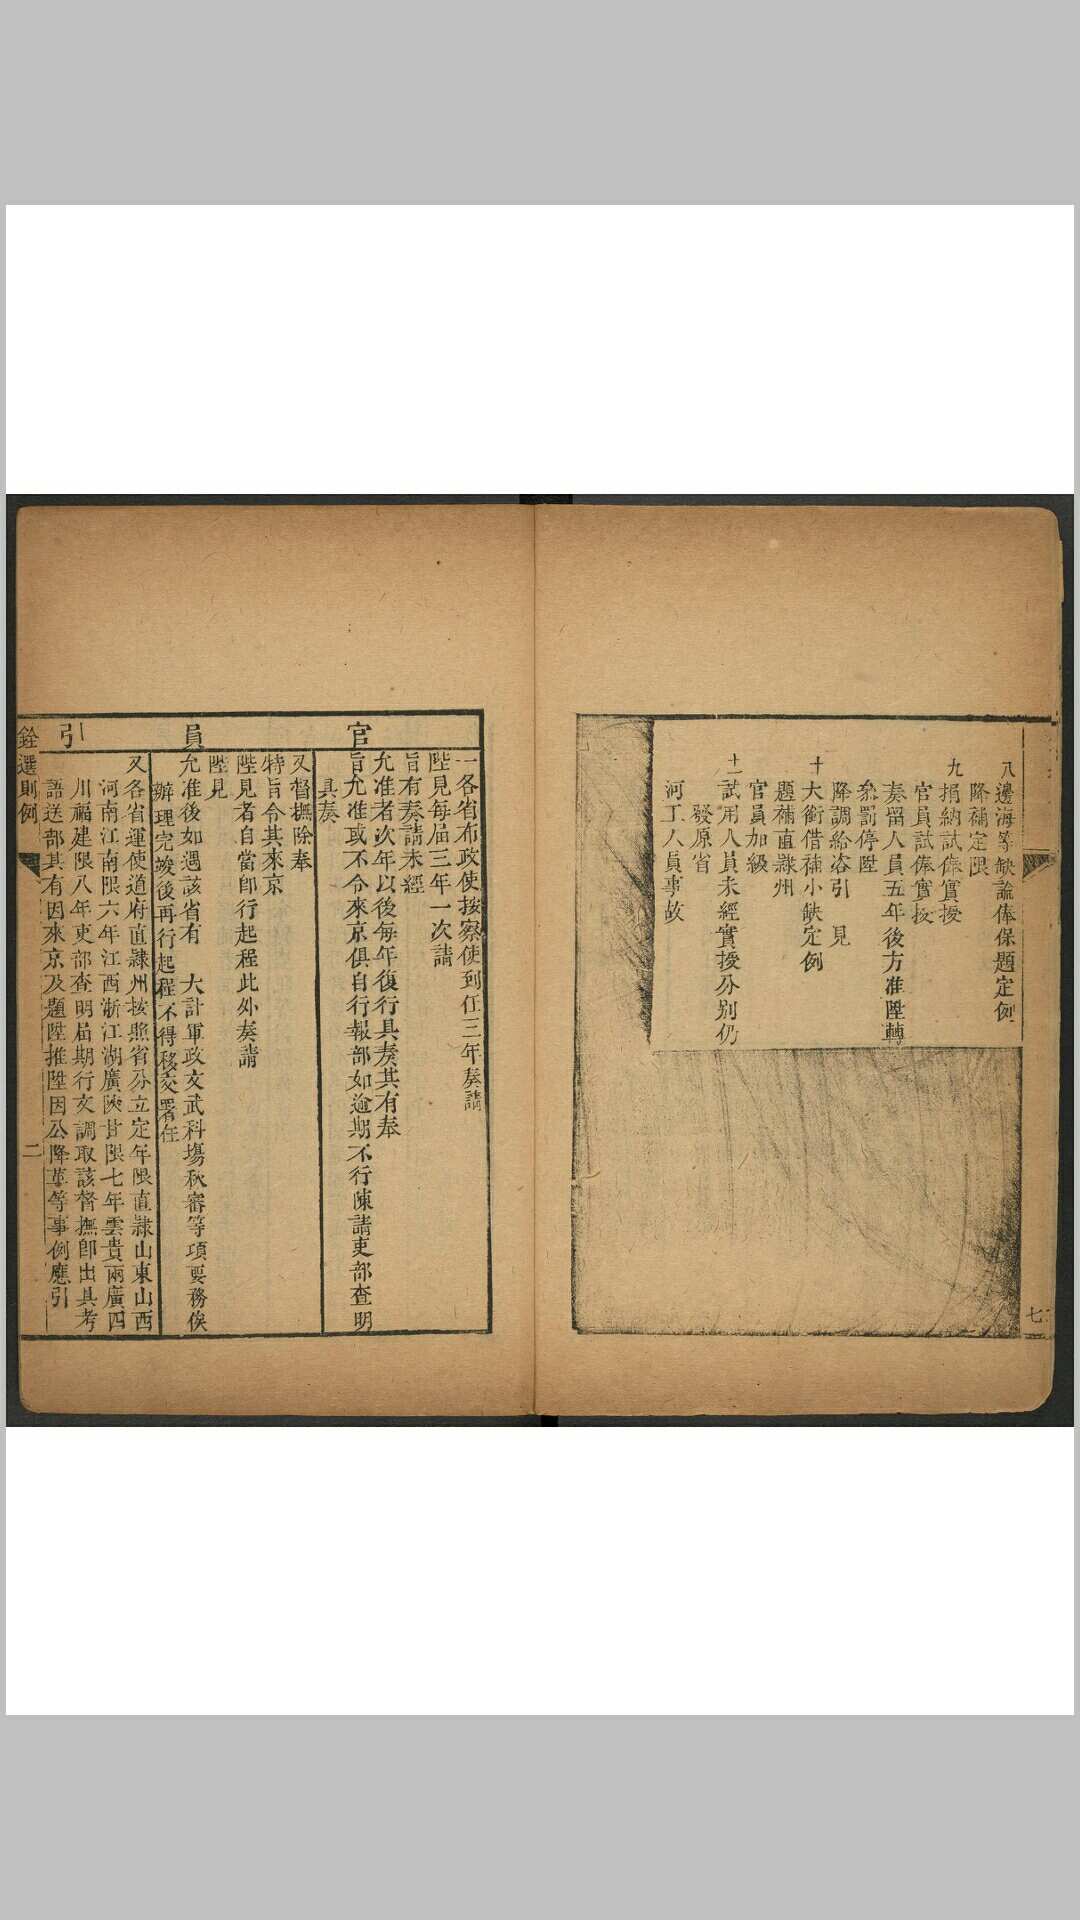 八邊海等缺論俸保題定例
降補定限
九捐納試俸實授
官員試俸實授
奏留人員五年後方准陞轉
叅罰停陞
降調給咨引　見
十大銜借補小缺定例
題補直隸州
官員加級
十一試用人員未經實授分別仍
發原省
河工人員事故
七
官員引
一各省布政使按察使到任三年奏請
陛見每屆三年一次請
旨有奏請未經
允准者次年以後每年復行具奏其有奉
旨允准或不令來京俱自行報部如逾期不行陳請吏部查明
具奏
又督撫除奉
特旨令其來京
陛見者自當卽行起程此外奏請
陛見
允准後如遇該省有　大計軍政文武科塲秋審等項要務俟
辦理完竣後再行起程不得移交署任
又各省運使道府直隸州按照省分立定年限直隸山東山西
河南江南限六年江西浙江湖廣陝甘限七年雲貴兩廣四
川福建限八年吏部查明屆期行文調取該督撫卽出具考
語送部其有因來京及題陞推陞因公降革等事例應引
銓選則例
二